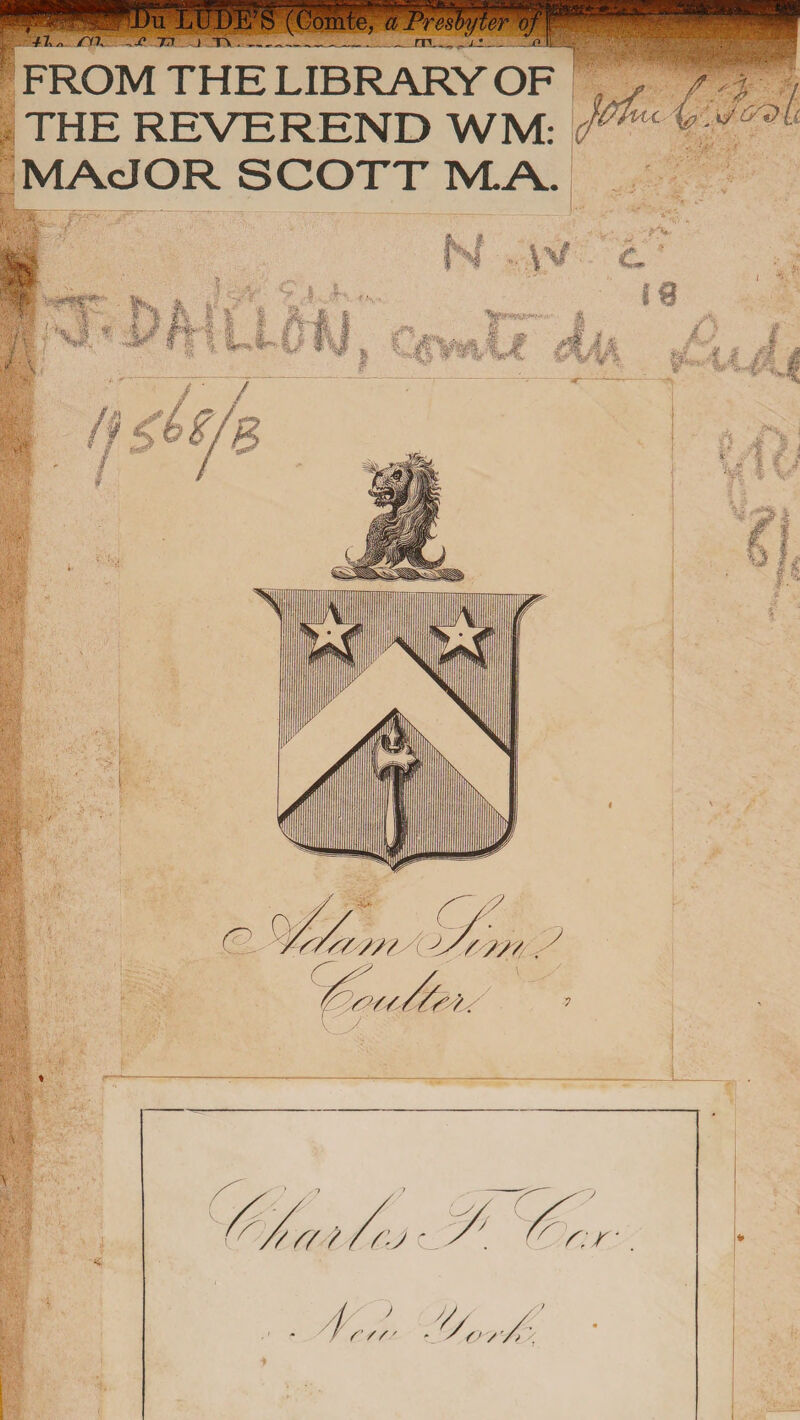 Du LUDE'S (Comte, a Presbyter of
FROM THE LIBRARY OF
THE REVEREND WM:
MAJOR SCOTT M.A.
John C.
N. W. C
18
J. DAILLON, comte du Lude
19568/B
Adam Sim
Coulter.
Charles F. Cox.
New York.